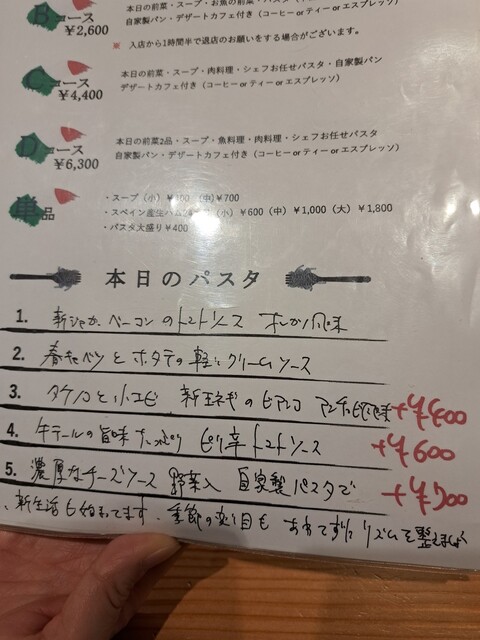 本日の前菜・スープ・お魚の前菜・パスタ
Bコース 自家製パン・デザートカフェ付き（コーヒー or ティー or エスプレッソ）
￥2,600
※ 入店から1時間半で退店のお願いをする場合がございます。
Cコース 本日の前菜・スープ・肉料理・シェフお任せパスタ・自家製パン
￥4,400 デザートカフェ付き（コーヒー or ティー or エスプレッソ）
Dコース 本日の前菜2品・スープ・魚料理・肉料理・シェフお任せパスタ
￥6,300 自家製パン・デザートカフェ付き（コーヒー or ティー or エスプレッソ）
単品 ・スープ（小）￥400 （中）￥700
・スペイン産生ハム （小）￥600（中）￥1,000（大）￥1,800
・パスタ大盛り￥400
本日のパスタ
1. 新じゃが ベーコン のトマトソース オレガノ風味
2. 春キャベツ と ホタテの 軽い クリームソース
3. タケノコと小エビ 新玉ネギの ビアンコ アンチョビ風味 +￥400
4. 牛テールの旨味たっぷり ピリ辛トマトソース +￥600
5. 濃厚なチーズソース 野菜入 自家製パスタで +￥700
新生活も始まってます。季節の変り目も あわてずに リズムを整えましょう